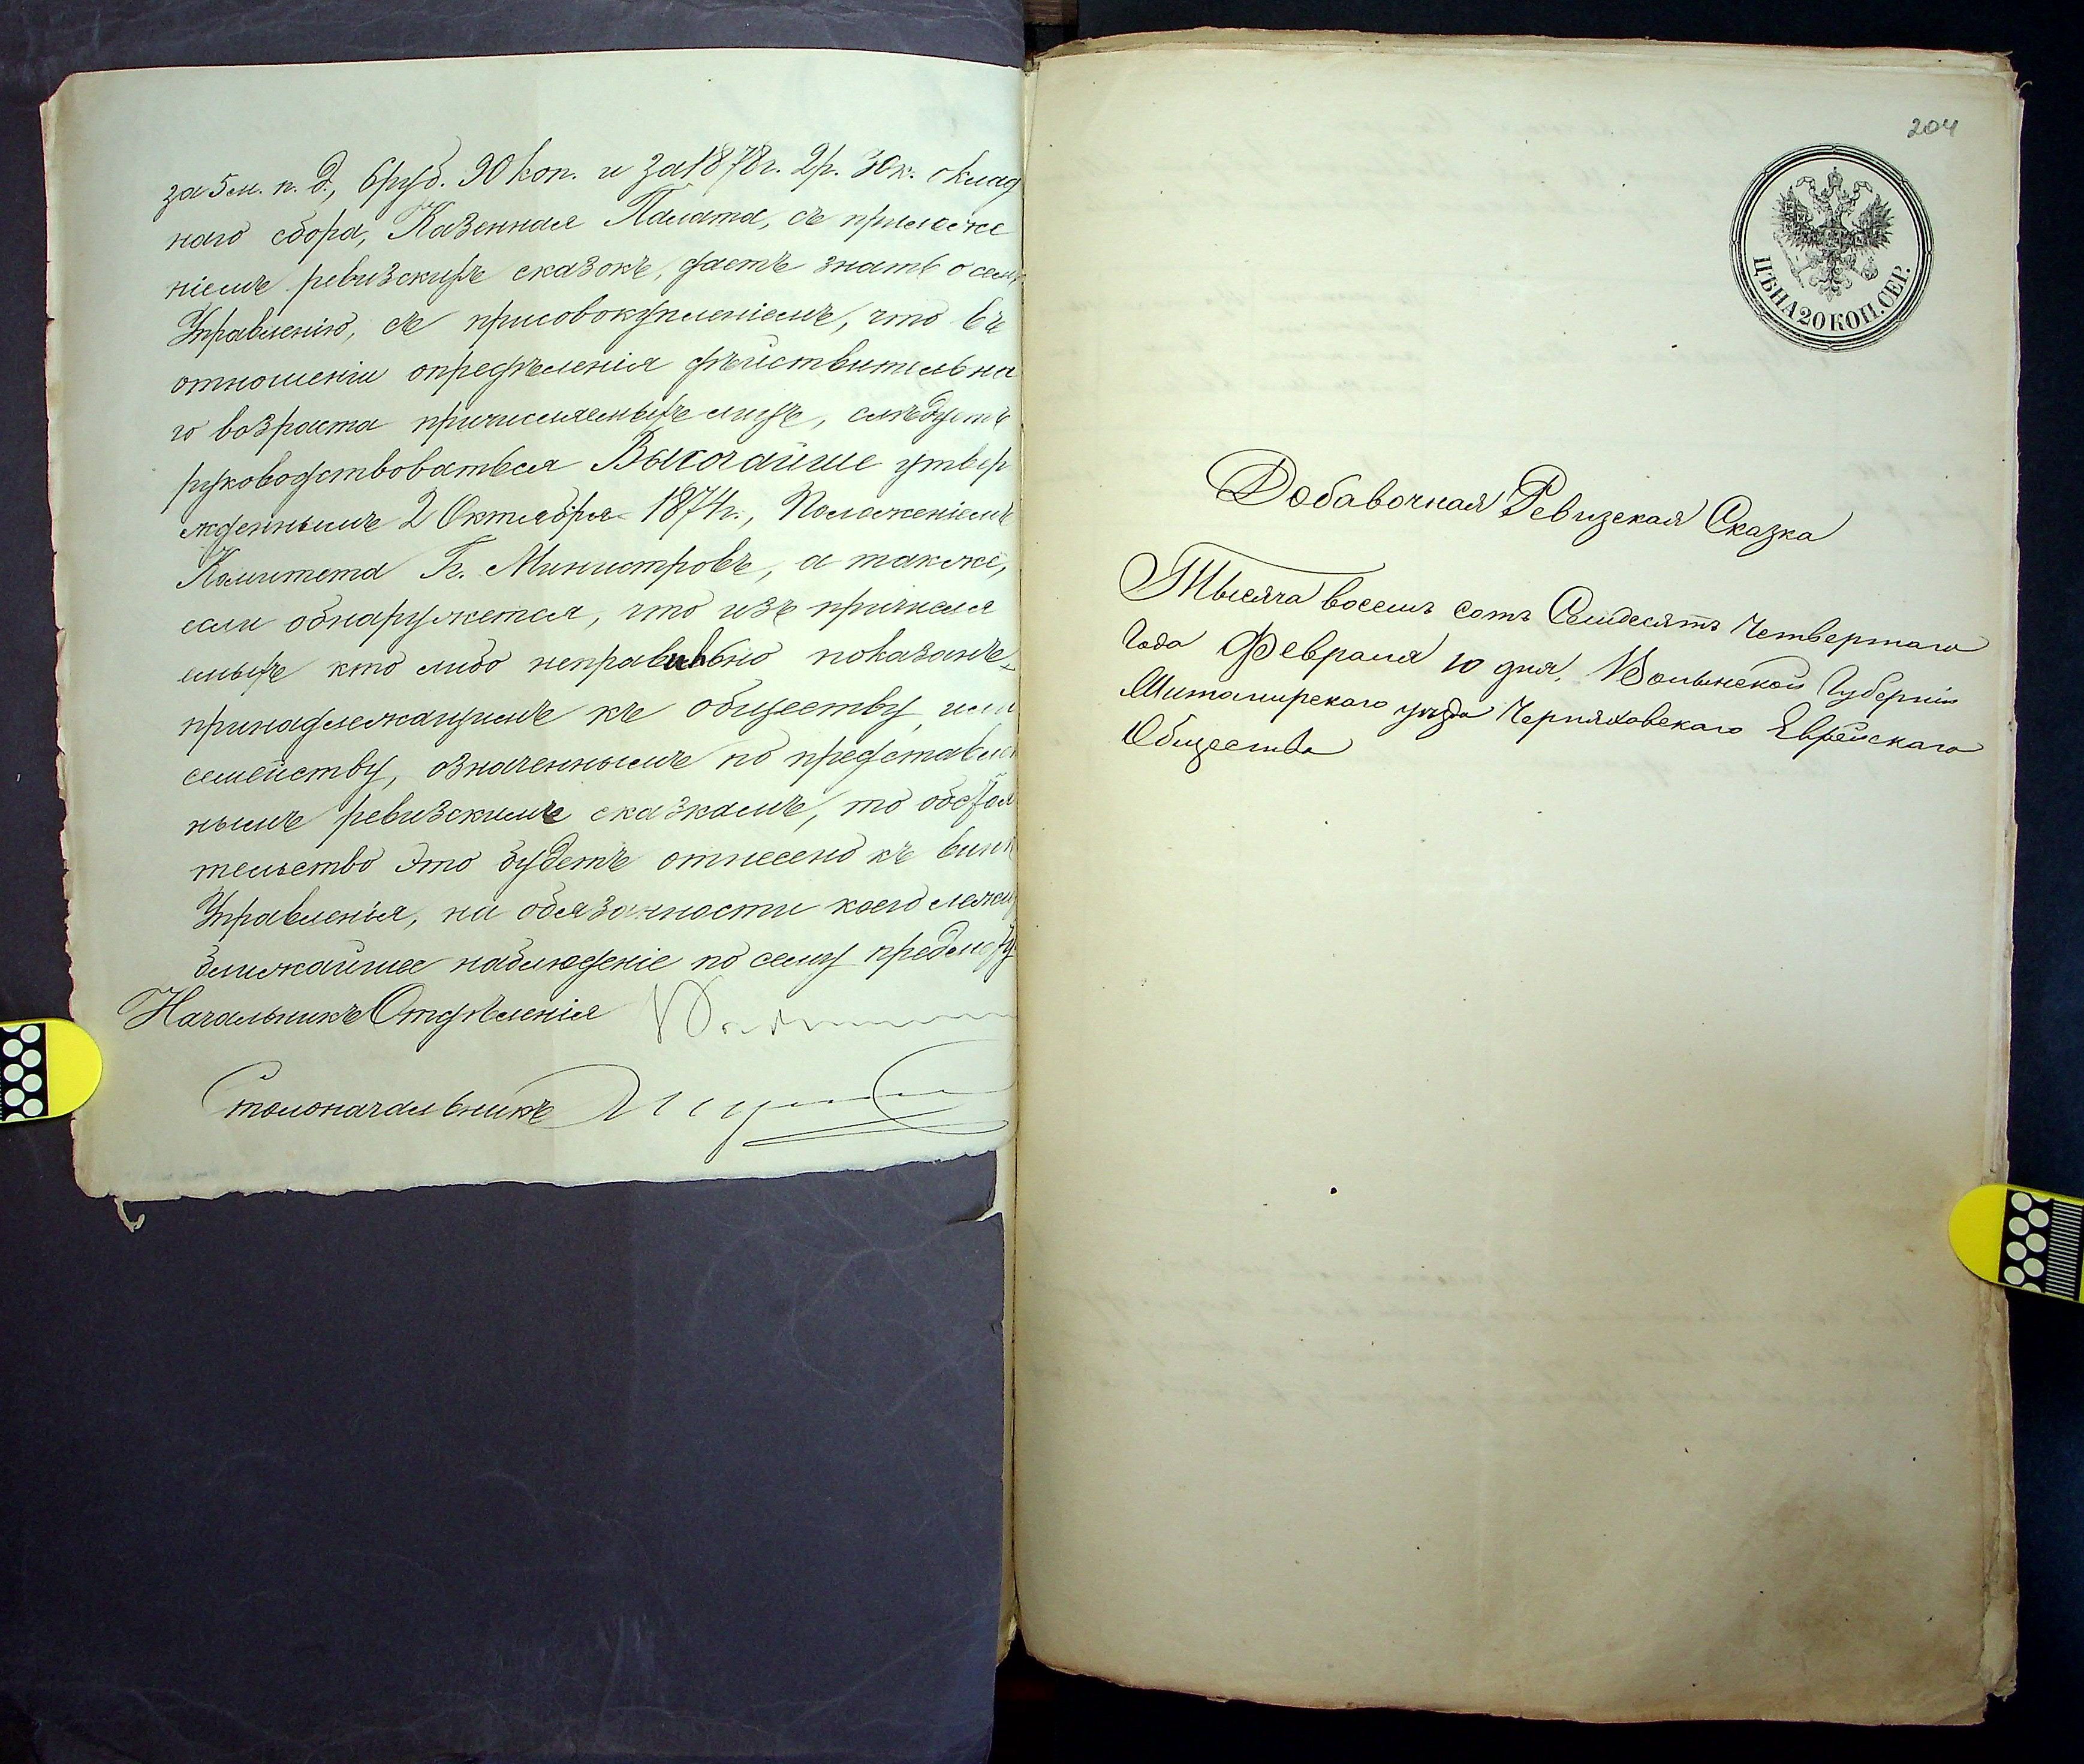 за 5 м. п. д., 6 руб. 90 коп. и за 1878 г. 2 р. 30 к. оклад
наго сбора, Казенная Палата, съ приложе
ніемъ ревизскихъ сказокъ, даетъ знать о семъ
Управленію, съ присовокупленіемъ, что въ
отношеніи опредѣленія дѣйствительна
го возраста причисляемыхъ лицъ, слѣдуетъ
руководствоваться Высочайше утвер
жденнымъ 2 Октября 1874 г., Положеніемъ
Комитета Гг. Министровъ, а также,
если обнаружется, что изъ причисля
емыхъ кто либо неправильно показанъ
принадлежащимъ къ обществу, или
семейству, означеннымъ по представлен
нымъ ревизскимъ сказкамъ, то обстоя
тельство это будетъ отнесено къ винѣ
Управленія, на обязанности коего лежи
ближайшее наблюденіе по сему предмету
Начальникъ Отдѣленія
Столоначальникъ
204
ЦѢНА 20 КОП. СЕР.
Добавочная Ревизская Сказка
Тысяча восемь сотъ Семдесятъ Четвертаго
Года Февраля 10 дня, Волынской Губерніи
Житомирскаго уезда Черняховскаго Еврейскаго
Общества